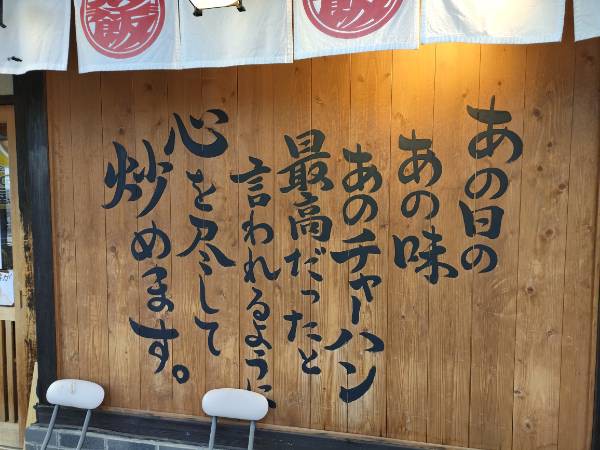 あの日の
あの味
あのチャーハン
最高だったと
言われるように
心を尽して
炒めます。
飯
飯